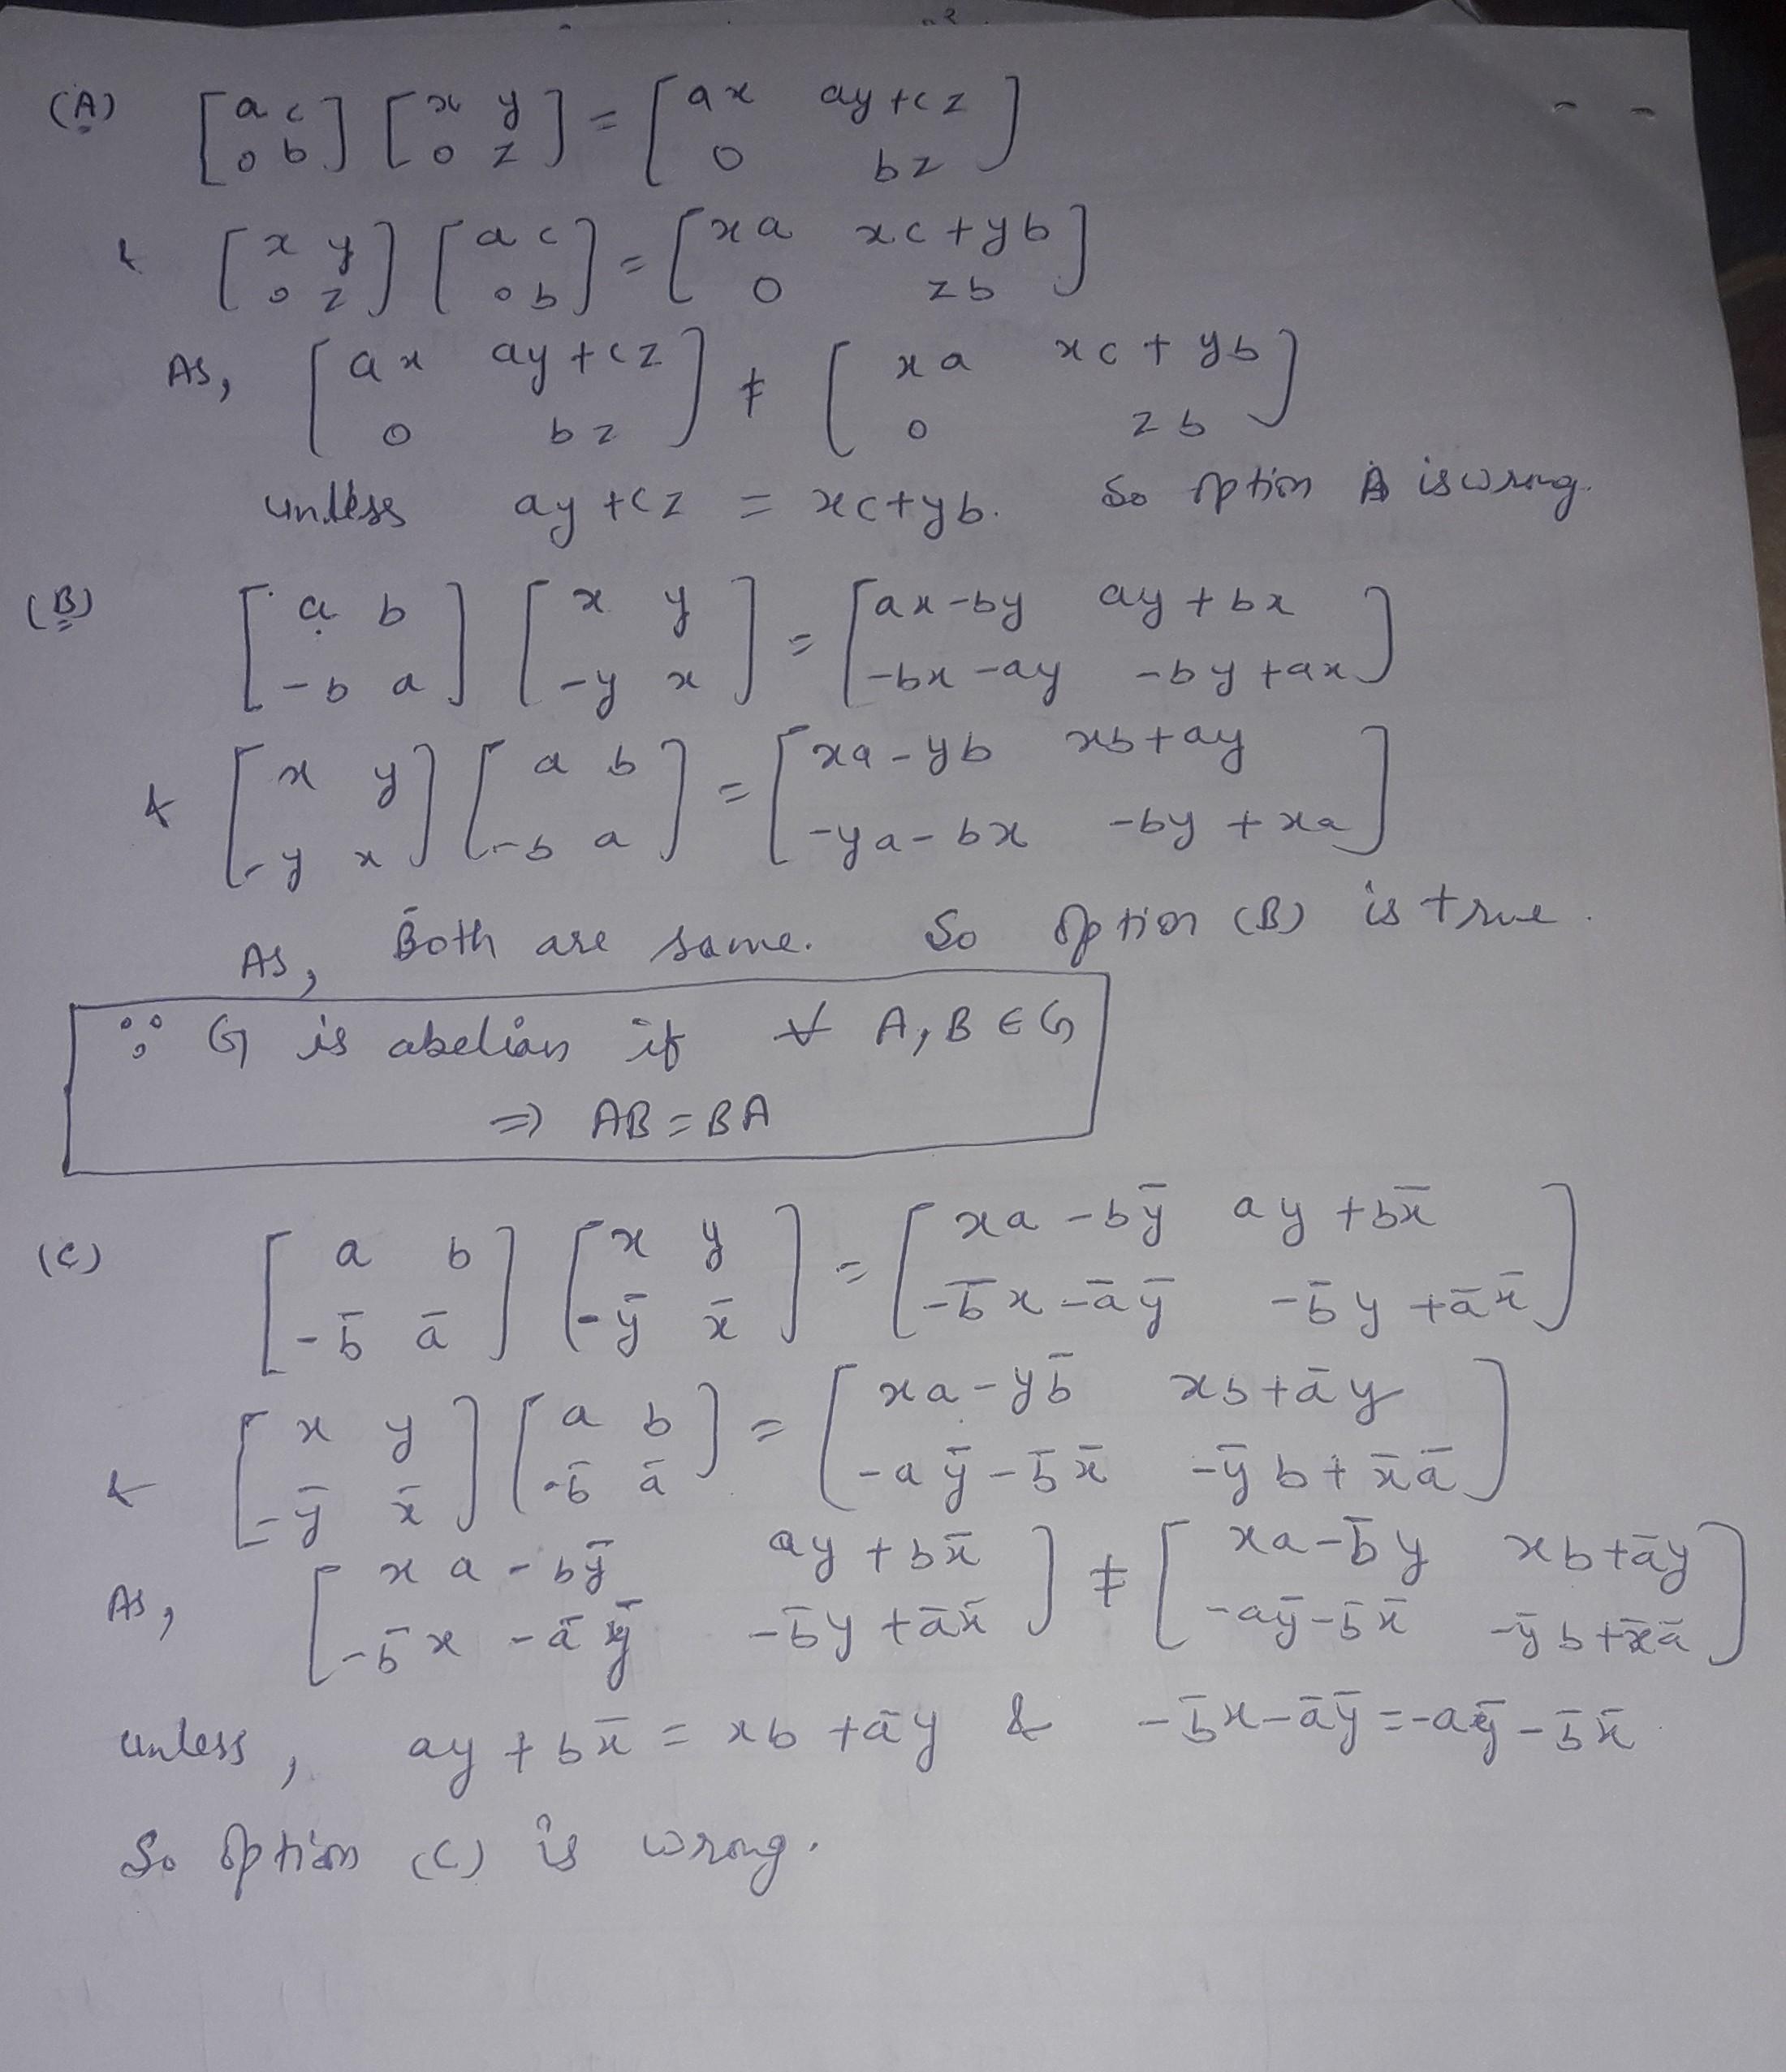 (A) [a c; 0 b] [x y; 0 z] = [ax ay+cz; 0 bz]
& [x y; 0 z] [a c; 0 b] = [xa xc+yb; 0 zb]
As, [ax ay+cz; 0 bz] ≠ [xa xc+yb; 0 zb]
unless ay+cz = xc+yb. So option A is wrong.
(B) [a b; -b a] [x y; -y x] = [ax-by ay+bx; -bx-ay -by+ax]
& [x y; -y x] [a b; -b a] = [xa-yb xb+ay; -ya-bx -by+xa]
As, Both are same. So option (B) is true.
∵ G is abelian if ∀ A, B ∈ G
⇒ AB = BA
(C) [a b; -b̄ ā] [x y; -ȳ x̄] = [xa-bȳ ay+bx̄; -b̄x-āȳ -b̄y+āx̄]
& [x y; -ȳ x̄] [a b; -b̄ ā] = [xa-yb̄ xb+āy; -aȳ-b̄x̄ -ȳb+x̄ā]
As, [xa-bȳ ay+bx̄; -b̄x-āȳ -b̄y+āx̄] ≠ [xa-b̄y xb+āy; -aȳ-b̄x̄ -ȳb+x̄ā]
unless, ay+bx̄ = xb+āy & -b̄x-āȳ = -aȳ-b̄x̄.
So option (C) is wrong.